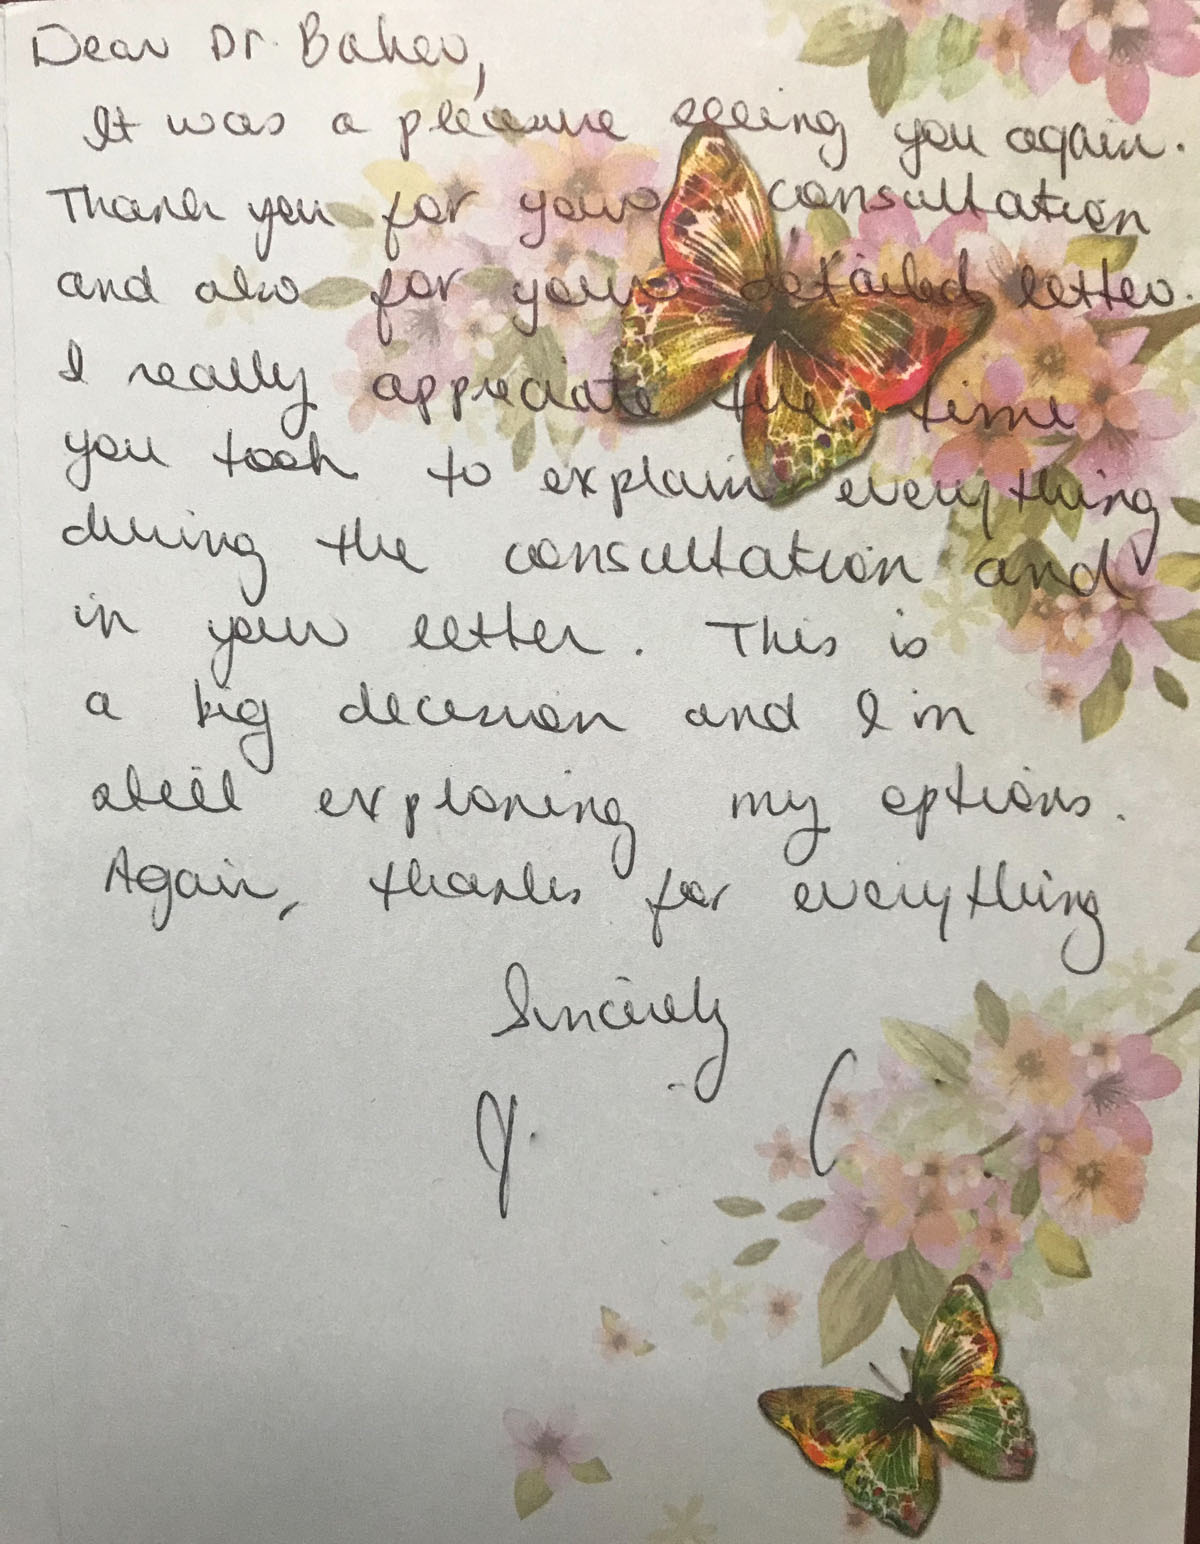 Dear Dr. Baker,
It was a pleasure seeing you again.
Thank you for your consultation
and also for your detailed letter.
I really appreciate the time
you took to explain everything
during the consultation and
in your letter. This is
a big decision and I'm
still exploring my options.
Again, thanks for everything
Sincerely
J. C